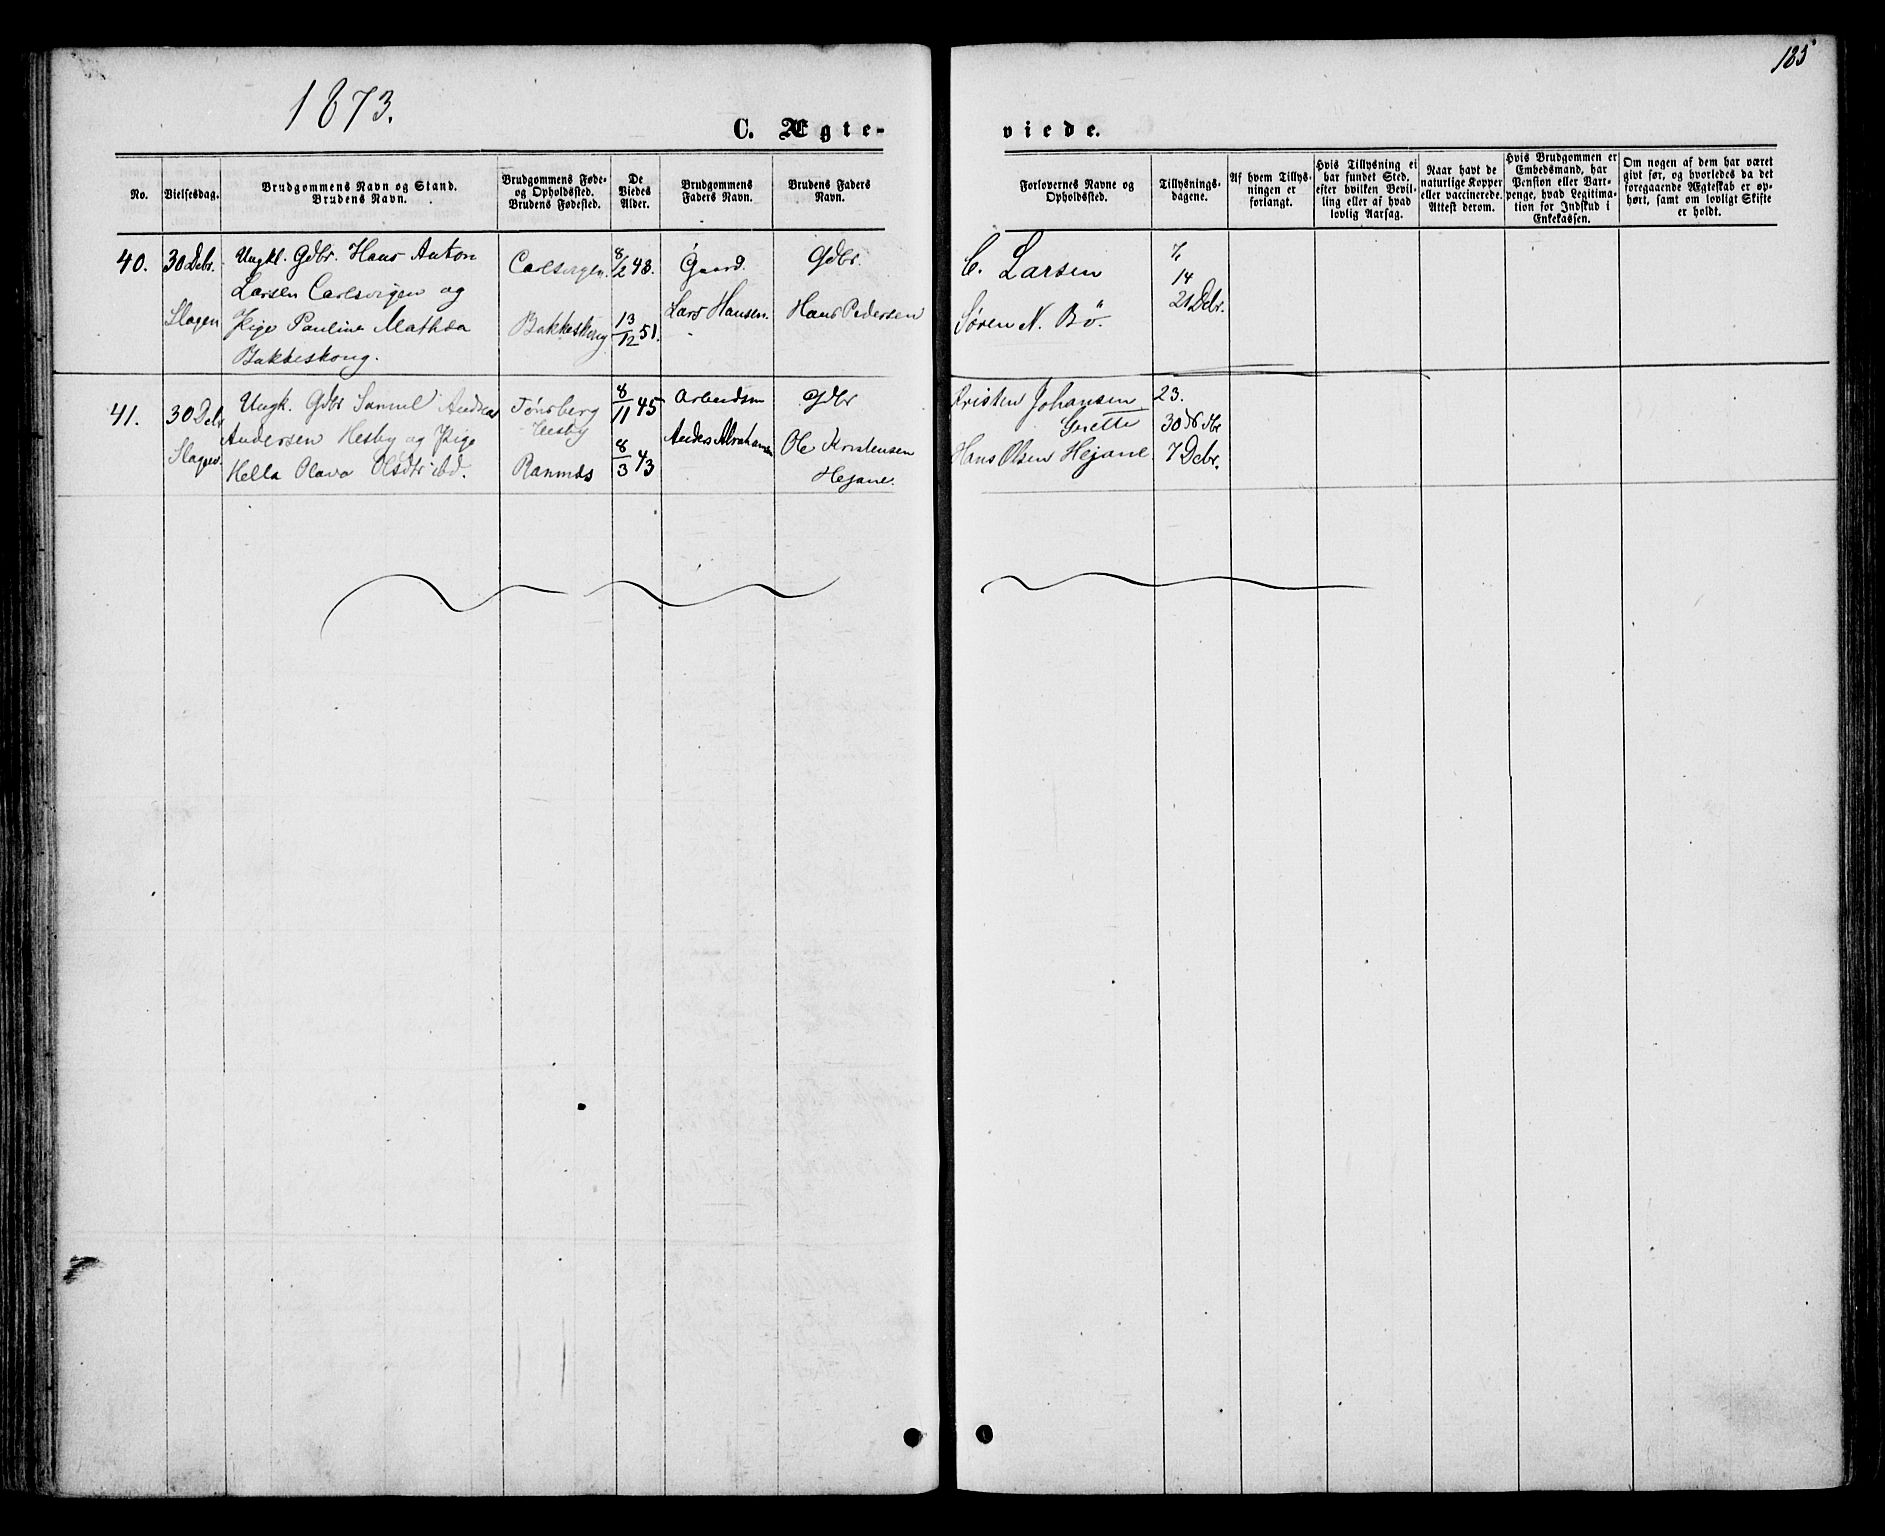 185
1873.
C. Ægte-
viede.
No.
Vielsesdag.
Brudgommens Navn og Stand.
Brudens Navn.
Brudgommens Føde-
og Opholdssted.
Brudens Fødested.
De
Viedes
Alder.
Brudgommens
Faders Navn.
Brudens Faders
Navn.
Forlovernes Navne og
Opholdssted.
Tillysnings-
dagene.
Af hvem Tillys-
ningen er
forlangt.
Hvis Tillysning ei
har fundet Sted.
efter hvilken Bevil-
ling eller af hvad
lovlig Aarsag.
Naar havt de
naturlige Kopper
eller vaccinerede.
Attest derom.
Hvis Brudgommen er
Embedsmand, har
Pension eller Vart-
penge, hvad Legitima-
tion for Indskud i
Enkekassen.
Om nogen af dem har været
givt før, og hvorledes da det
foregaaende Ægteskab er op-
hørt, samt om lovligt Skifte
er holdt.
40.
30 Debr.
Slagen
Ungk. Gdbr. Hans Anton
Larsen Carlsvigen og
Pige Pauline Mathea
Bakkeskoug.
Carlsvigen
Bakkeskoug
8/2 48.
13/12 51.
Gaard.
Lars Hansen.
Gdbr.
Hans Pedersen
C. Larsen
Søren N. Bö.
7,
14
21 Debr.
41.
30 Debr
Slagen.
Ungk. Gdbr Samuel Andreas
Andersen Hesby og Pige
Hella Olava Olsdtr ibd.
Tönsberg
Hesby
Ramnæs
8/11 45
8/3 43
Arbeidsm
Anders Abrahamsen
Gdbr
Ole Kristensen
Hejane.
Kristen Johansen
Hans Olsen Hejane
23.
30 Nbr
7 Debr.